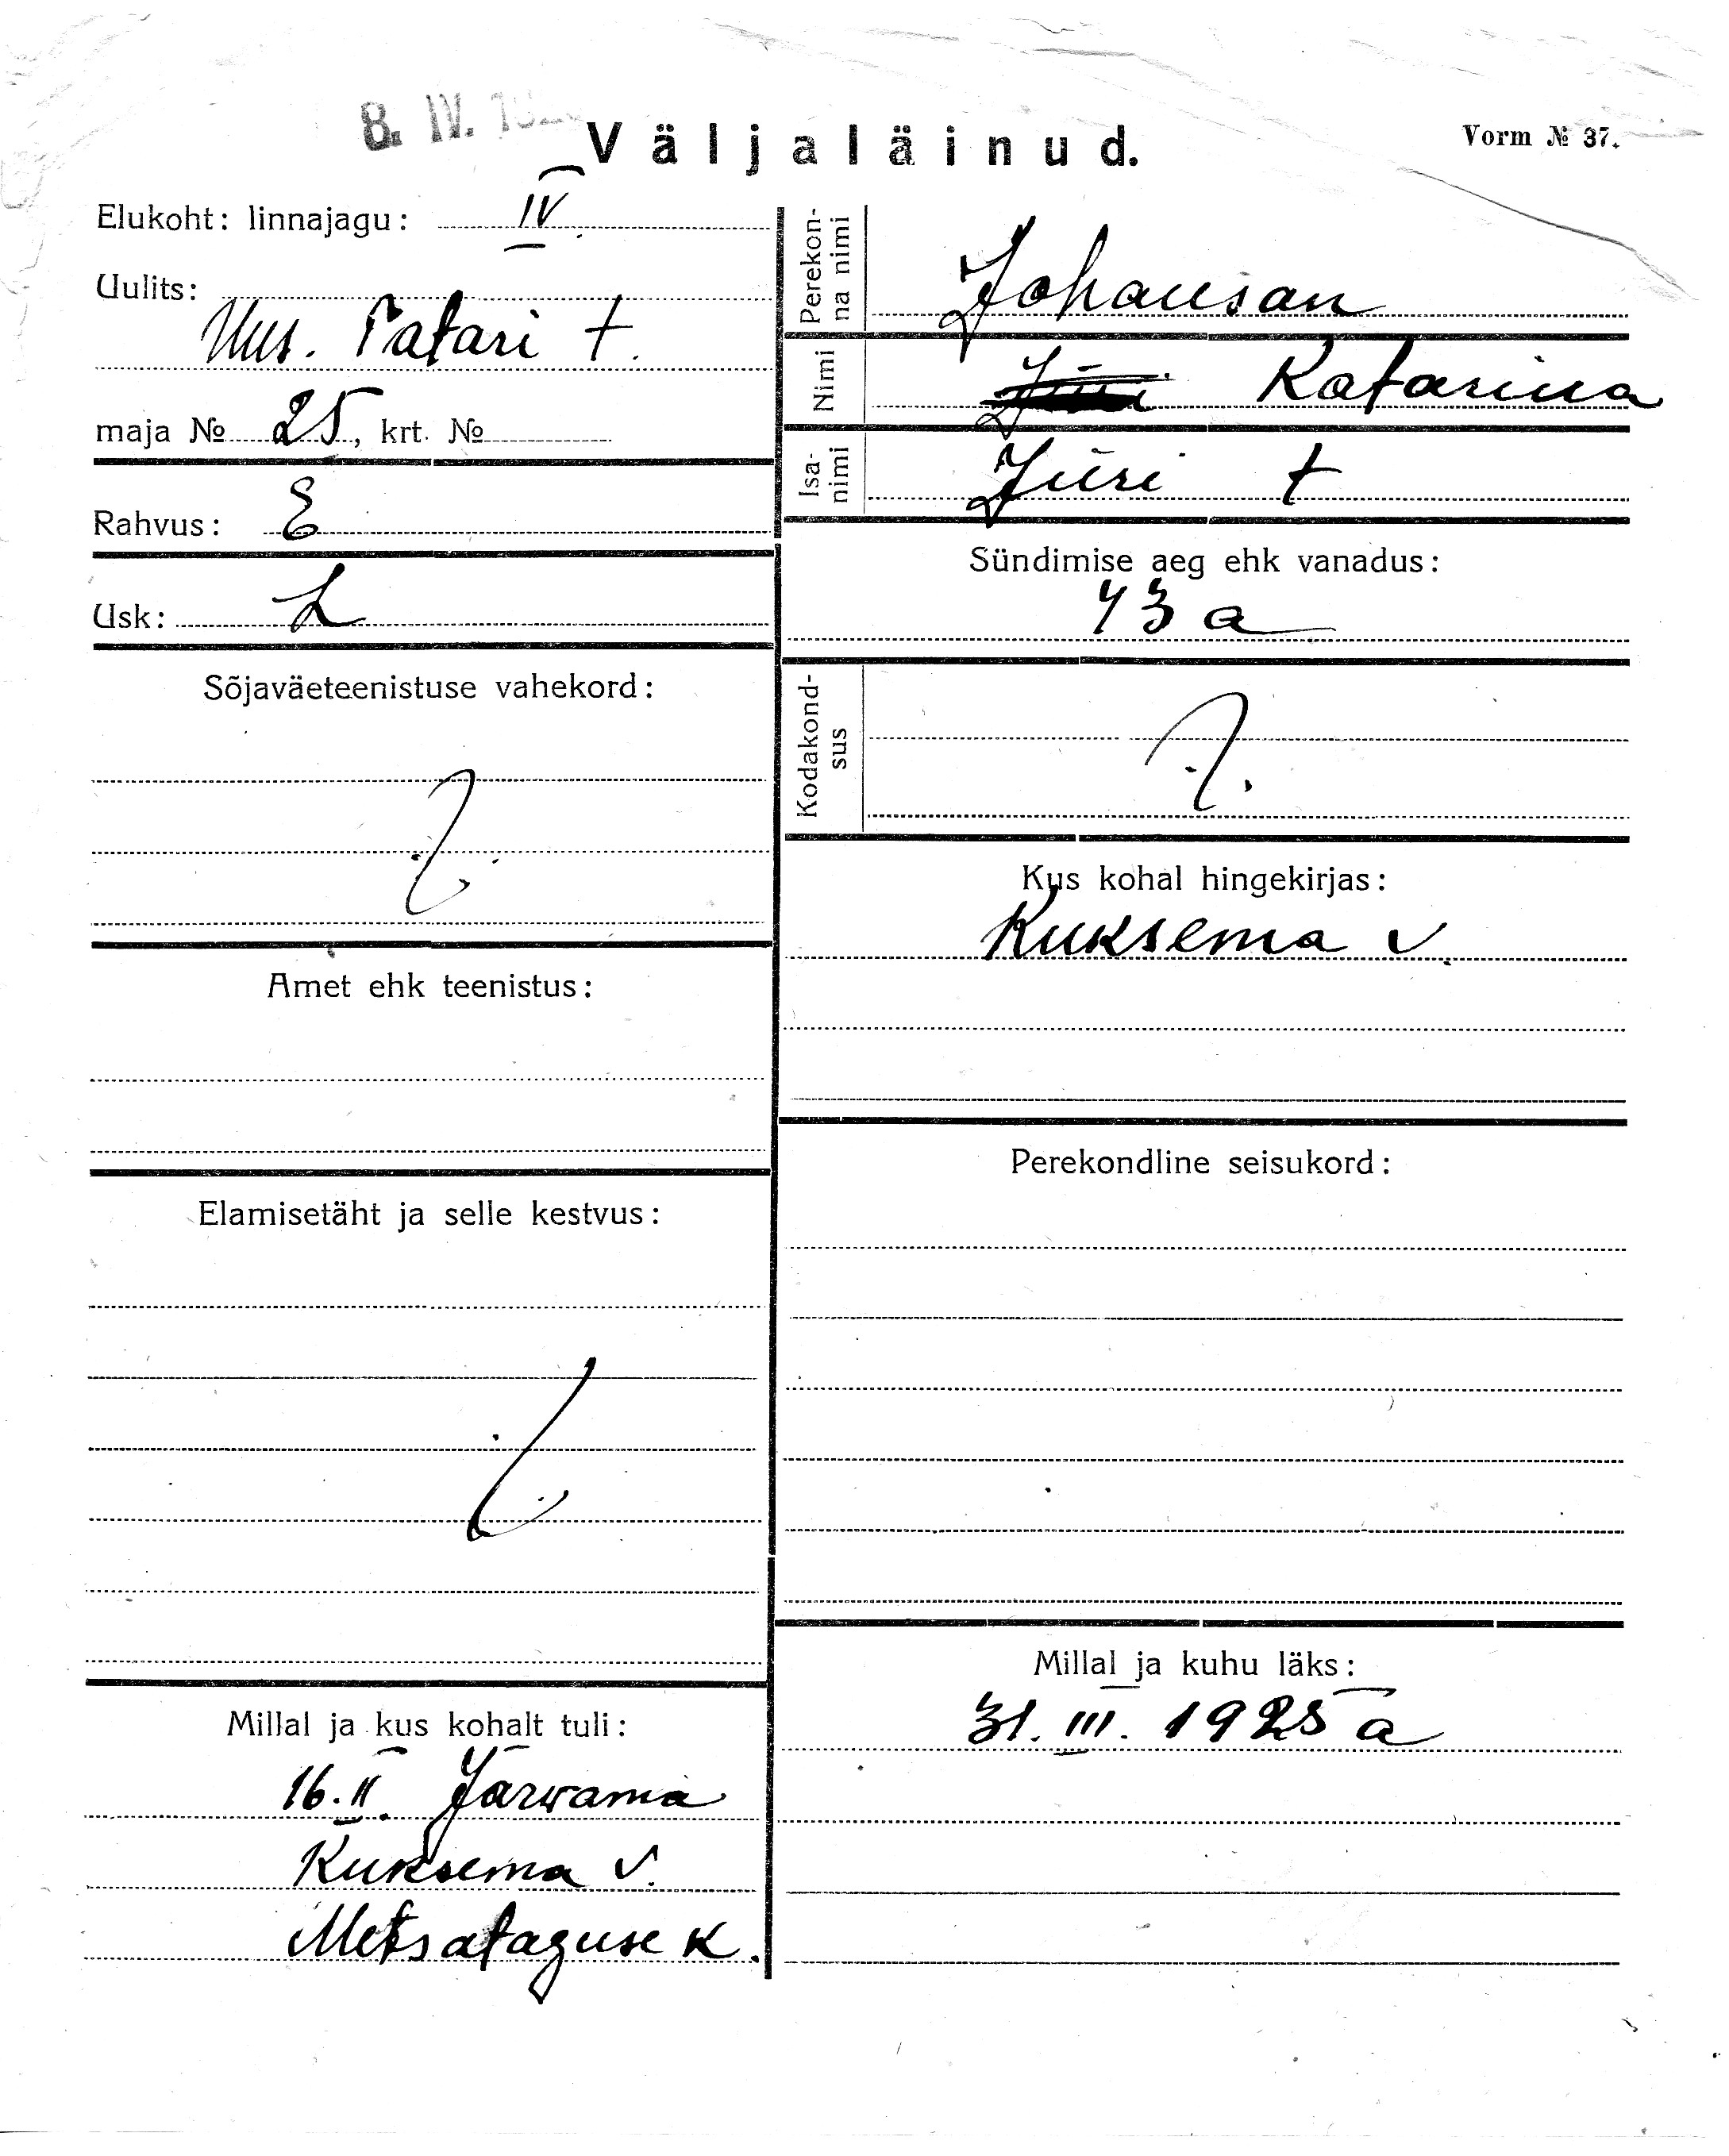 8. IV.
Väljaläinud.
Vorm № 37.
Elukoht: linnajagu: IV
Uulits:
Uus. Tatari t.
maja № 25, krt. №
Rahvus: E
Usk: L
Sõjaväeteenistuse vahekord:
Amet ehk teenistus:
Elamisetäht ja selle kestvus:
Millal ja kus kohalt tuli:
16. II. Järvama
Kuksema v.
Metsataguse k.
Perekon-
na nimi
Johansan
Nimi
Jüri Katarina
Isa-
nimi
Jüri t
Sündimise aeg ehk vanadus:
43 a
Kodakond-
sus
Kus kohal hingekirjas:
Kuksema v.
Perekondline seisukord:
Millal ja kuhu läks:
31. III. 1925 a